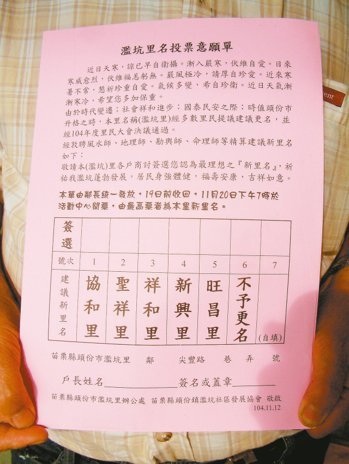 濫坑里名投票意願單
近日天寒，諒已早自衛攝。漸入嚴寒，伏維自愛。日來
寒威愈烈，伏維福泰躬無。嚴風極冷，請厚自珍愛。近來寒
暑不常，懇祈珍重自愛。氣候多變，希自珍衛。近日天氣漸
漸寒冷，希望您多加保重。
由於時代變遷；社會祥和進步；國泰民安之際；時值頭份市
升格之時，本里名稱(濫坑里)經多數里民提議建議更名，並
經104年度里民大會決議通過。
經敦聘風水師、地理師、勘輿師、命理師等精算建議新里名
如下：
敬請本(濫坑)里各戶商討簽選您認為最理想之『新里名』，祈
祐我濫坑蓬勃發展，居民身強體健，福壽安康，吉祥如意。
本單由鄰長統一發放，19日前收回，11月20日下午7時於
活動中心開票，由最高票者為本里新里名。
簽選
號次 1 2 3 4 5 6 7
建議新里名 協和里 聖祥里 祥和里 新興里 旺昌里 不予更名 (自填)
苗栗縣頭份市濫坑里 鄰 尖豐路 巷 弄 號
戶長姓名 簽名或蓋章
苗栗縣頭份市濫坑里辦公處 苗栗縣頭份鎮濫坑社區發展協會 敬啟
104.11.12